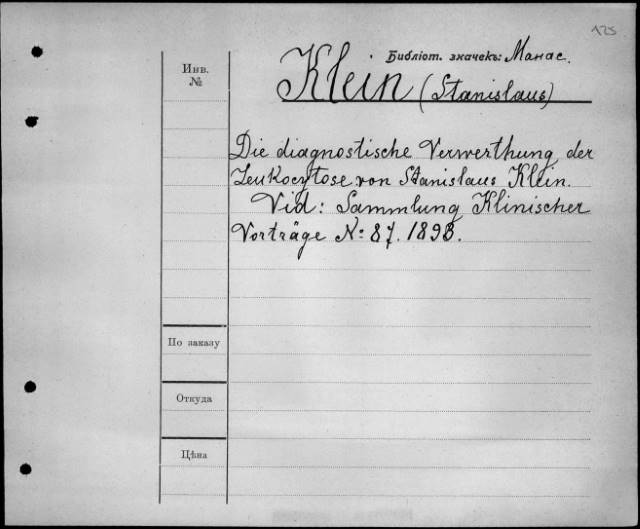 125
Библіот. значекъ: Манас.
Инв.
№
Klein (Stanislaus)
Die diagnostische Verwerthung der
Leukocytose von Stanislaus Klein.
Vid: Sammlung Klinischer
Vorträge №: 87. 1893.
По заказу
Откуда
Цѣна